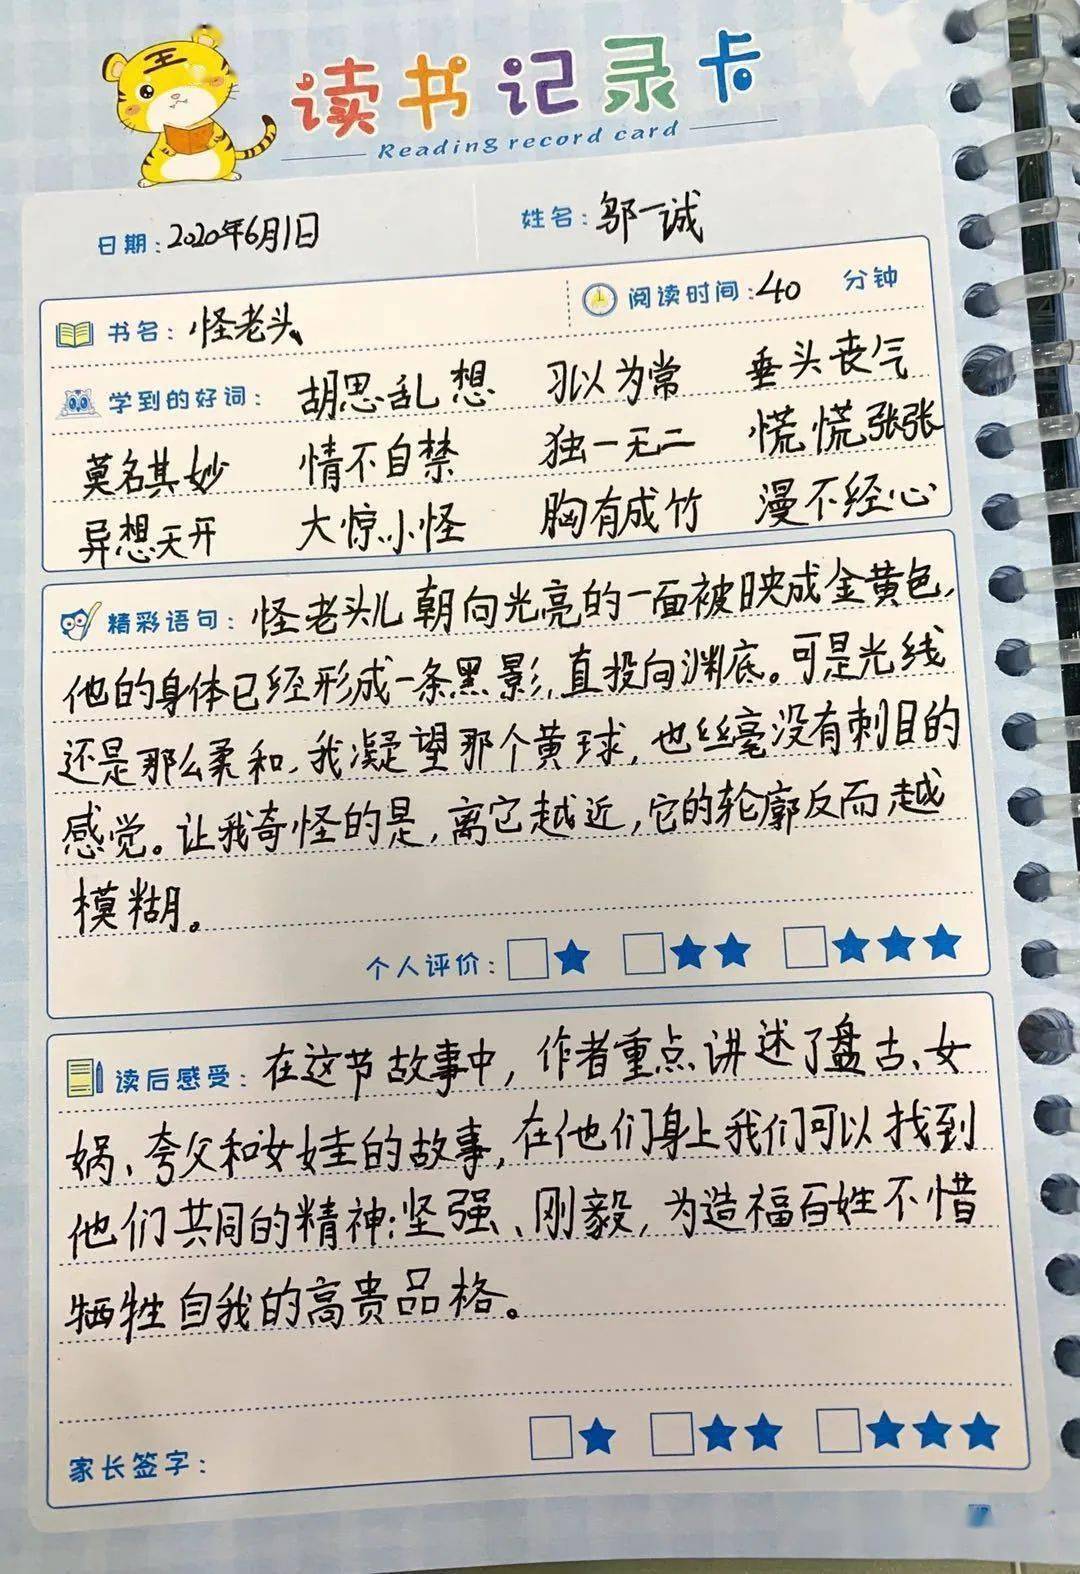 王
读书记录卡
Reading record card
日期：2020年6月1日 姓名：邬一诚
书名：怪老头 阅读时间：40 分钟
学到的好词： 胡思乱想 习以为常 垂头丧气
莫名其妙 情不自禁 独一无二 慌慌张张
异想天开 大惊小怪 胸有成竹 漫不经心
精彩语句：怪老头儿朝向光亮的一面被映成金黄色，
他的身体已经形成一条黑影，直投向渊底。可是光线
还是那么柔和，我凝望那个黄球，也丝毫没有刺目的
感觉。让我奇怪的是，离它越近，它的轮廓反而越
模糊。
个人评价： □★ □★★ □★★★
读后感受：在这节故事中，作者重点讲述了盘古、女
娲、夸父和女娃的故事，在他们身上我们可以找到
他们共同的精神：坚强、刚毅，为造福百姓不惜
牺牲自我的高贵品格。
□★ □★★ □★★★
家长签字：